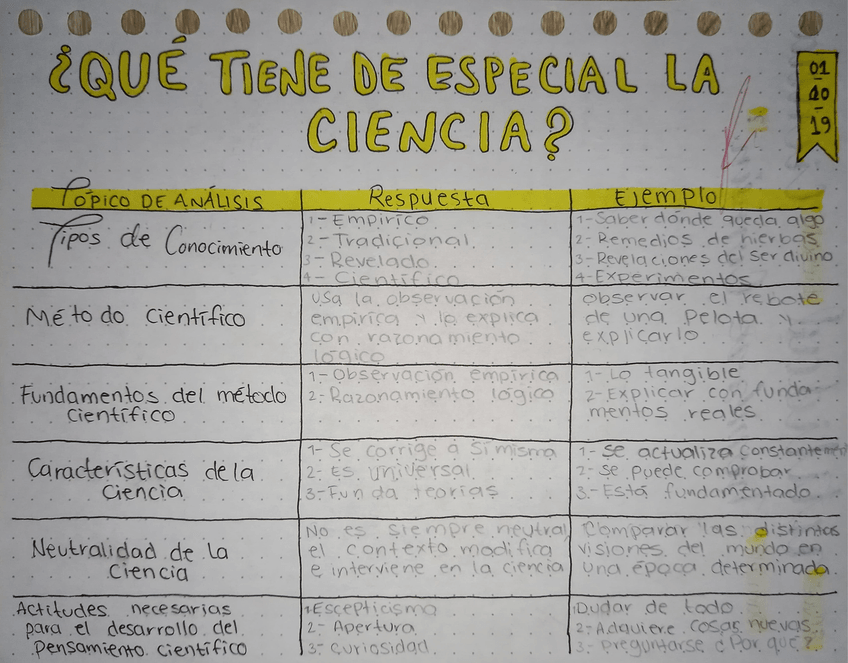 ¿QUÉ TIENE DE ESPECIAL LA
CIENCIA?
01
10
19
TÓPICO DE ANÁLISIS
Respuesta
Ejemplo
Tipos de Conocimiento
1-Empírico
2-Tradicional
3-Revelado
4-Científico
1-Saber dónde queda algo
2-Remedios de hierbas
3-Revelaciones del Ser divino
4-Experimentos
Método Científico
Usa la observación
empírica y lo explica
con razonamiento
lógico
Observar el rebote
de una pelota y
explicarlo
Fundamentos del método
científico
1-Observación empírica
2-Razonamiento lógico
1-Lo tangible
2-Explicar con funda-
mentos reales
Características de la
Ciencia
1- Se corrige a sí misma
2- Es universal
3-Funda teorías
1-Se actualiza constantement
2-Se puede comprobar
3-Está fundamentado
Neutralidad de la
Ciencia
No es siempre neutral
el contexto modifica
e interviene en la ciencia
Comparar las distintas
visiones del mundo en
una época determinada
Actitudes necesarias
para el desarrollo del
Pensamiento científico
1-Escepticismo
2- Apertura
3- Curiosidad
1Dudar de todo
2-Adquiere cosas nuevas
3- Preguntarse ¿Por qué?